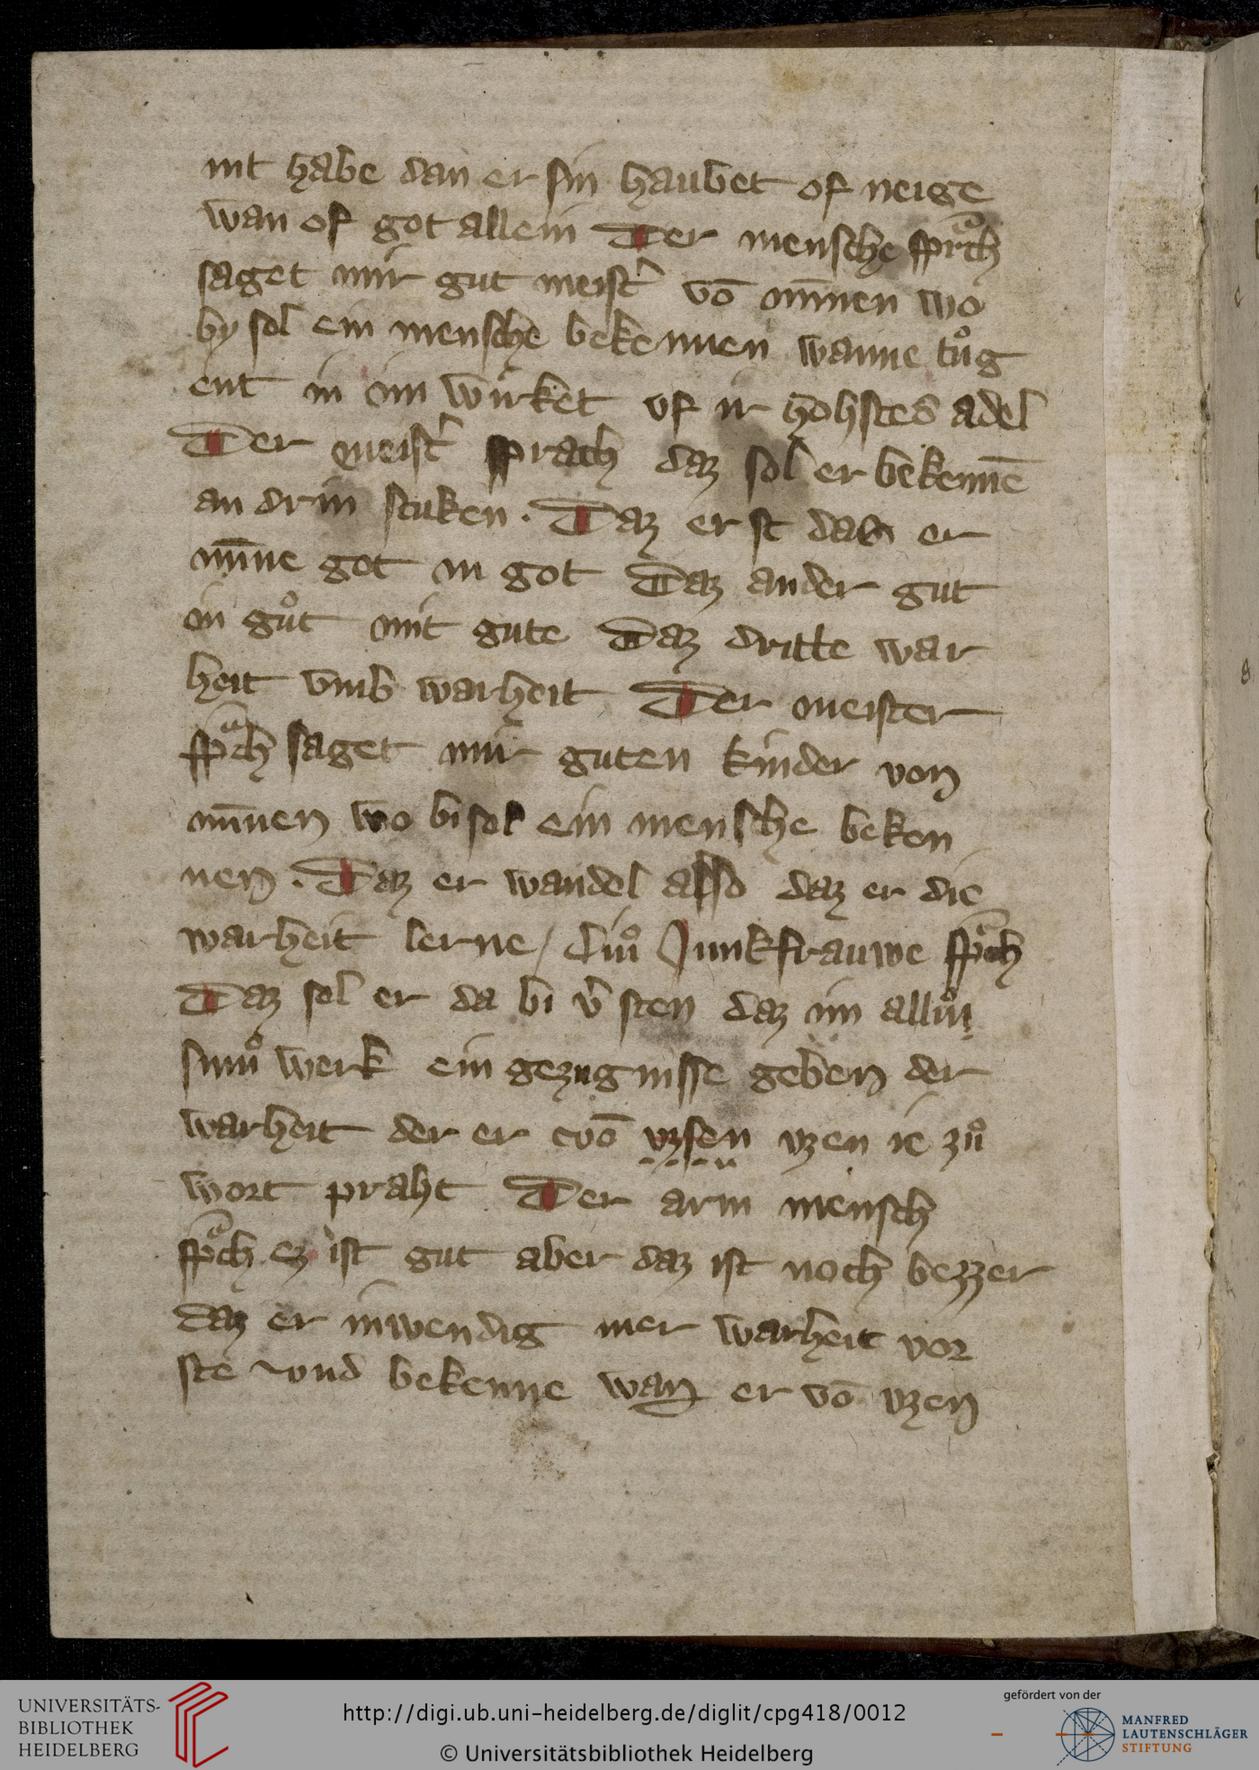 nit habe dan er sin haubet of neige
wan of got allein Der mensche sprͦch
saget mir gut meist᷑ vō mīnen wo
by sol ein mensche bekennen wanne tuͦg
ent in im wirket vf ir hohstes adel
Der meist᷑ sprach daz sol er bekennē
an drin stuken . Daz erst daß er
mīne got in got Daz ander gut
in guͦt mit gute Daz dritte war
heit vmb warheit Der meister
spͣch saget mir guten kinder von
mīnen wo bi sol ein mensche beken
nen . Daz er wandel also daz er die
warheit lerne / Diuͦ Junkfrauwe spͣch
Daz sol er da bi v᷑sten daz im alluͦ
sinuͦ werk ein gezugnisse geben der
warheit der er vō vzsen vzen ie zuͦ
wort praht Der arm mensch
spͣch ez ist gut aber daz ist noch bezzer
daz er inwendig mer warheit vor
ste vnd bekenne wan er vō vzen
UNIVERSITÄTS-
BIBLIOTHEK
HEIDELBERG
http://digi.ub.uni-heidelberg.de/diglit/cpg418/0012
© Universitätsbibliothek Heidelberg
gefördert von der
MANFRED
LAUTENSCHLÄGER
STIFTUNG